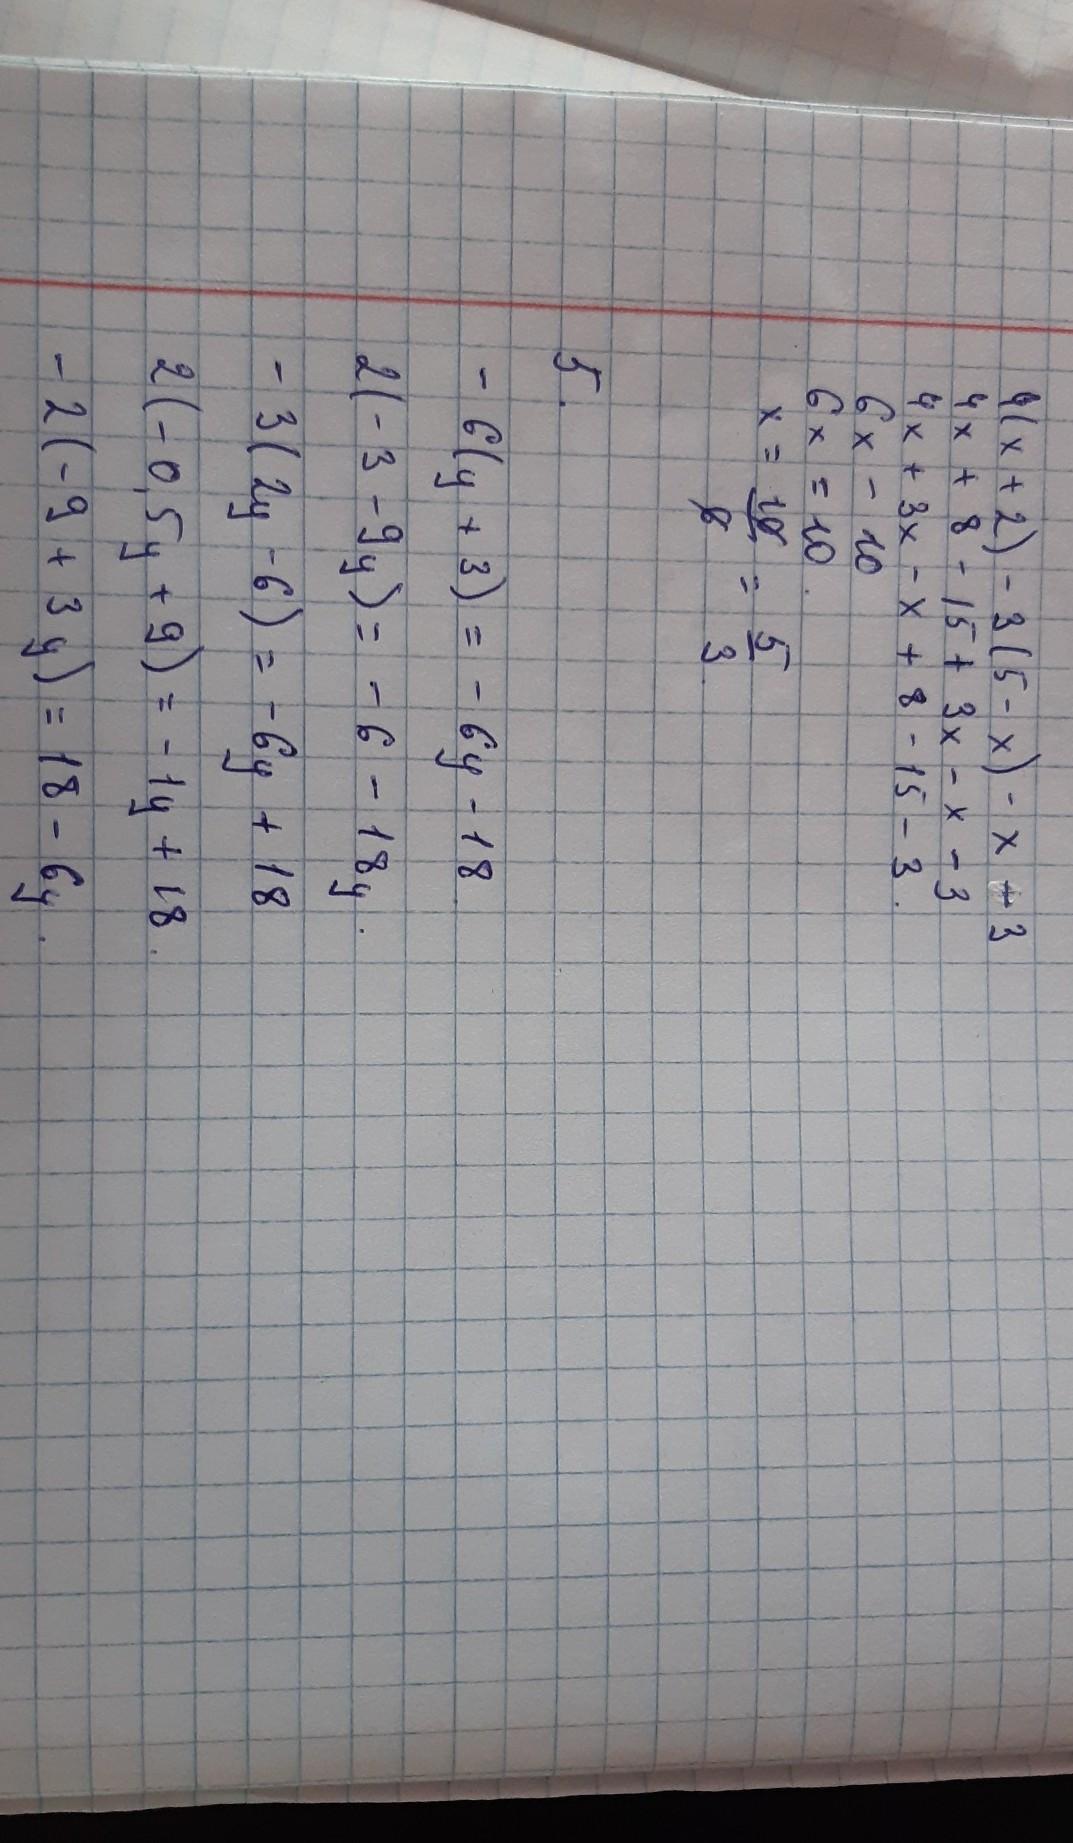 4(x+2)-3(5-x)-x-3
4x+8-15+3x-x-3
4x+3x-x+8-15-3.
6x-10
6x=10.
x=10/6=5/3
5.
-6(y+3)=-6y-18.
2(-3-9y)=-6-18y.
-3(2y-6)=-6y+18
2(-0,5y+9)=-1y+18.
-2(-9+3y)=18-6y.